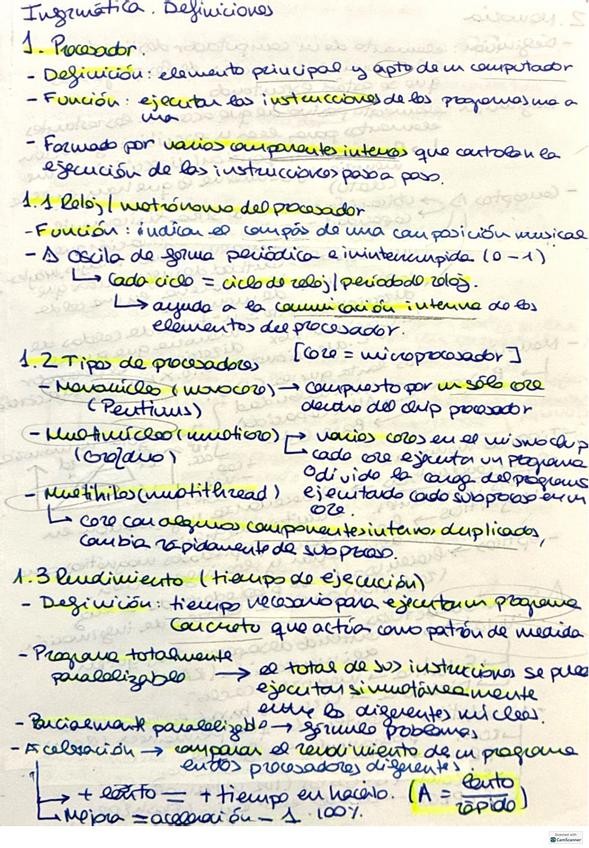 Informática. Definiciones
1. Procesador.
- Definición: elemento principal y apto de un computador
- Función: ejecutar las instrucciones de los programas una a
una
- Formado por varios componentes internos que controlan la
ejecución de las instrucciones paso a paso.
1.1 Reloj / metrónomo del procesador
- Función: indican el compás de una composición musical
- Δ Oscila de forma periódica e ininterrumpida (0-1)
↳ Cada ciclo = ciclo de reloj / período de reloj.
↳ ayuda a la comunicación interna de los
elementos del procesador.
1.2 Tipos de procesadores [core = microprocesador]
- Mononúcleo (monocore) → compuesto por un sólo core
(Pentiums) dentro del chip procesador
- Multinúcleo (multicore) → varios cores en el mismo chip
↳ cada core ejecutan un programa
O divido la carga del programa
- Multihilos (multithread) ejecutando cada subproceso en un
core.
↳ core con algunos componentes internos duplicados,
cambia rápidamente de subproceso.
1.3 Rendimiento (tiempo de ejecución)
- Definición: tiempo necesario para ejecutar un programa
concreto que actúa como patrón de medida
- Programa totalmente
paralelizable → el total de sus instrucciones se pue
ejecutar simultáneamente
entre los diferentes núcleos.
- Parcialmente paralelizable →
- Aceleración → comparar el rendimiento de un programa
en dos procesadores diferentes.
↳ + lento = + tiempo en hacerlo. (A = lento/rápido)
↳ Mejora = aceleración - 1 · 100%.
Scanned with
CamScanner